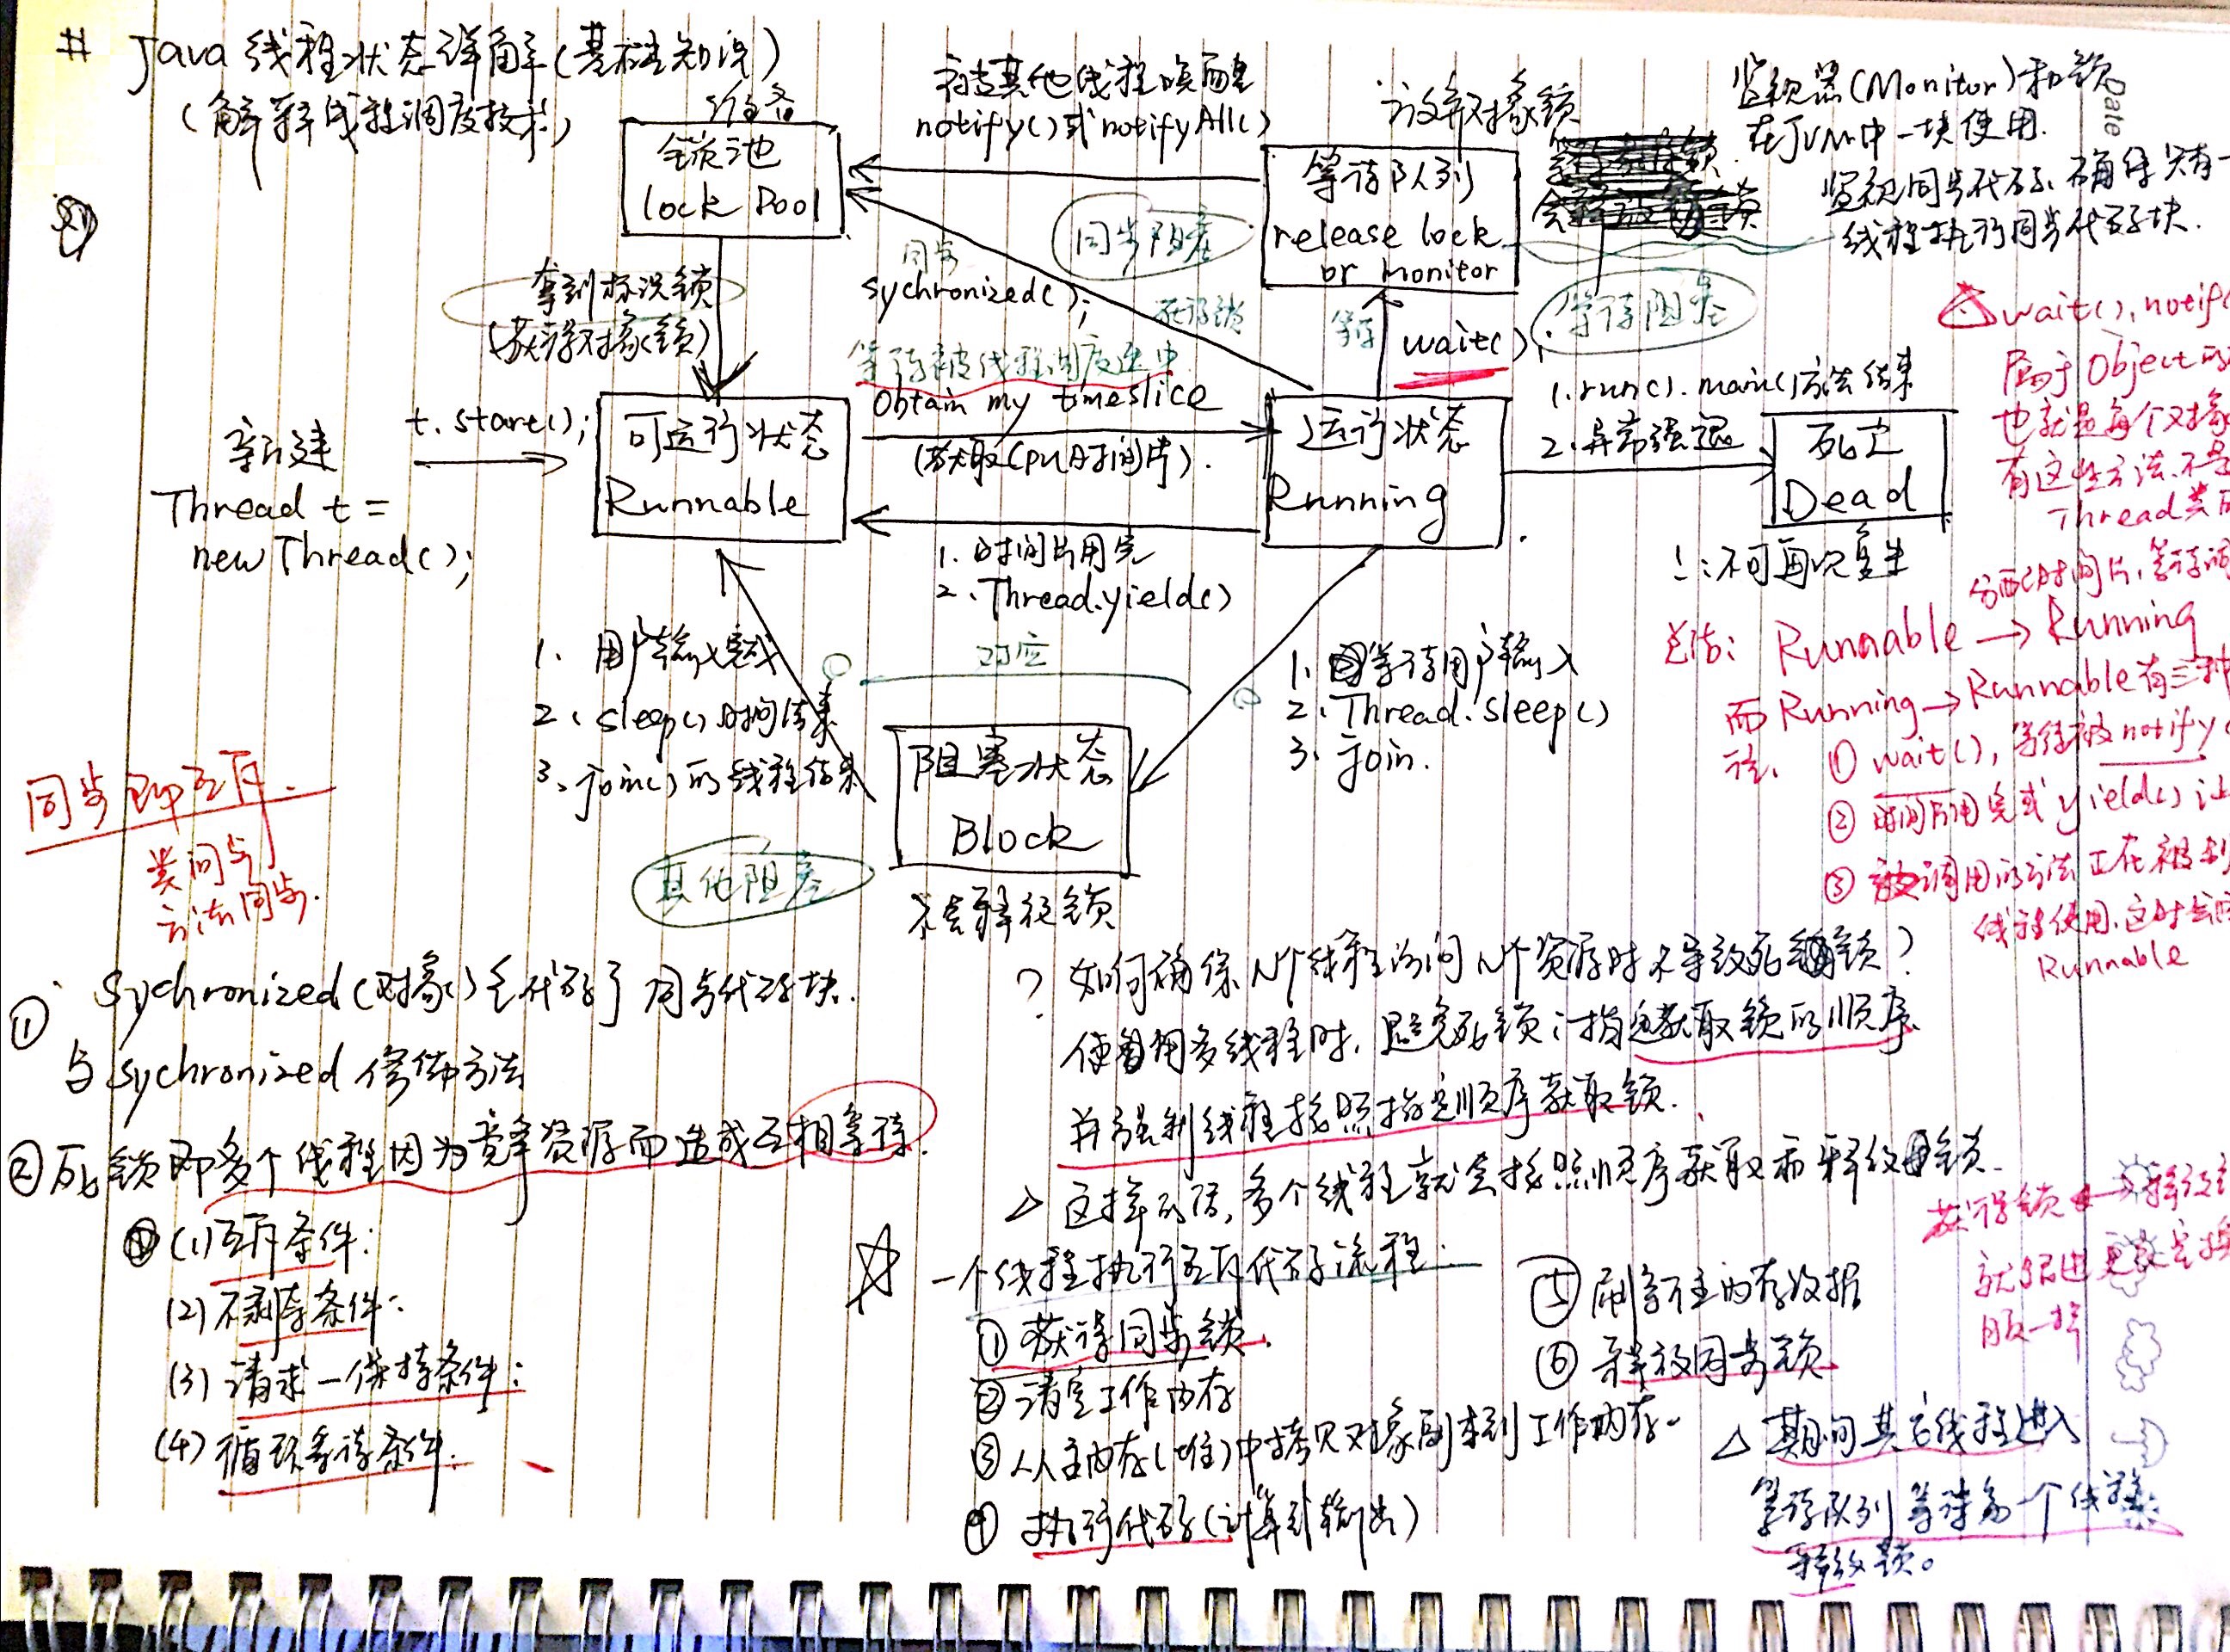 # Java 线程状态详解(基础知识)
(解释线程调度技术)
准备
锁池
lock Pool
被其他线程唤醒
notify()或notifyAll()
释放对象锁
等待队列
release lock
or monitor
监视器(Monitor)和锁
在JVM中一块使用.
监视同步代码、确保只有一
线程执行同步代码块.
Date
拿到标识锁
(获得对象锁)
同步
sychronized();
同步阻塞
等待
wait();
等待阻塞
等待被线程调度选中
Obtain my timeslice
(获取CPU时间片).
新建
Thread t =
new Thread();
t.start();
可运行状态
Runnable
运行状态
Running
1.run().main()方法结束
2.异常强退
死亡
Dead
不可再次复生
1. 时间片用完
2. Thread.yield()
1. 用户输入完成
2. sleep()时间结束
3. join()的线程结束
对应
1. 等待用户输入
2. Thread.sleep()
3. join.
阻塞状态
Block
其他阻塞
不会释放锁
wait(), notif
属于Object的
也就是每个对象
有这些方法.不是
Thread类的
分配时间片,等待调
总结: Runnable → Running
而 Running → Runnable 有三种
① wait(), 等待被notify
② 时间片用完或yield()让
③ 被调用的方法正在被别
线程使用.这时会
Runnable
同步即互斥.
类同步
方法同步.
① Sychronized(对象){代码} 同步代码块.
与sychronized修饰方法
② 死锁即多个线程因为竞争资源而造成互相等待.
(1)互斥条件:
(2)不剥夺条件:
(3)请求一保持条件:
(4)循环等待条件.
? 如何确保N个线程访问N个资源时不导致死锁?
使用多线程时,避免死锁:指定获取锁的顺序
并强制线程按照指定顺序获取锁.
△ 这样的话,多个线程就会按照顺序获取和释放锁.
一个线程执行互斥代码流程:
① 获得同步锁.
② 清空工作内存
③ 从主内存(堆)中拷贝对象副本到工作内存.
④ 执行代码(计算或输出)
⑤ 刷新主内存数据
⑥ 释放同步锁
获得锁 释放
就跟进更衣室换
服一样
△ 期间其它线程进入
等待队列等待前一个线程
释放锁。